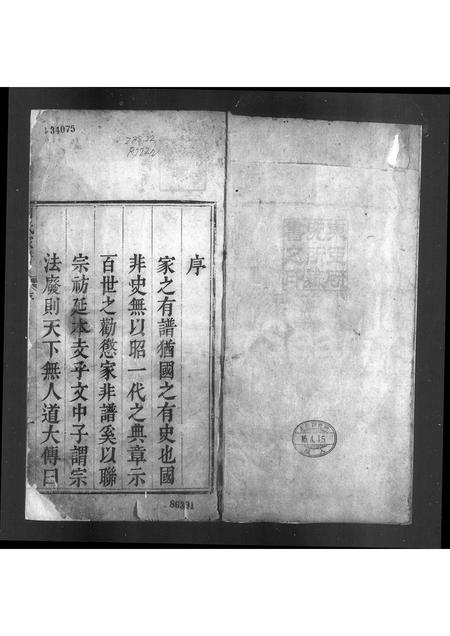 序
家之有譜猶國之有史也國
非史無以昭一代之典章示
百世之勸懲家非譜奚以聯
宗祊延本支乎文中子謂宗
法廢則天下無人道大傳曰
34075
86391